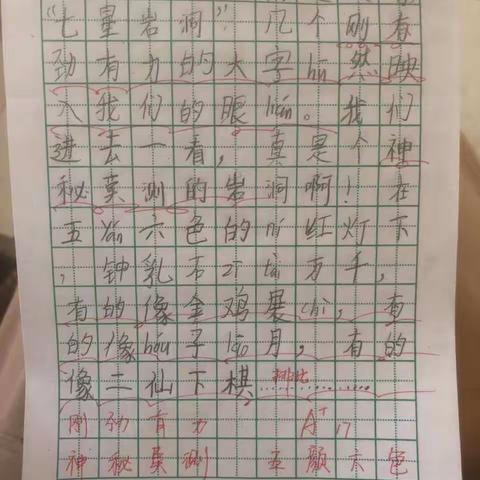 “七星岩洞”几个刚看
劲有力的大字hū然映
入我们的眼lián。我们
进去一看，真是个神
秘莫测的岩洞啊！在
五yán六色的ní红灯下
，钟乳石zī tài万千，
有的像金鸡展chì，有
的像hóu子lāo月，有的
像二仙下棋……
排比
刚劲有力 A+ 17
神秘莫测 五颜六色